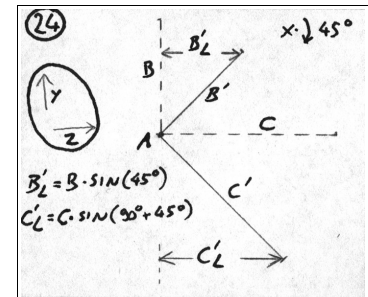 24
B'L
X. 45°
B
B'
Y
Z
A
C
C'
B'L = B·SIN(45°)
C'L = C·SIN(90°+45°)
C'L